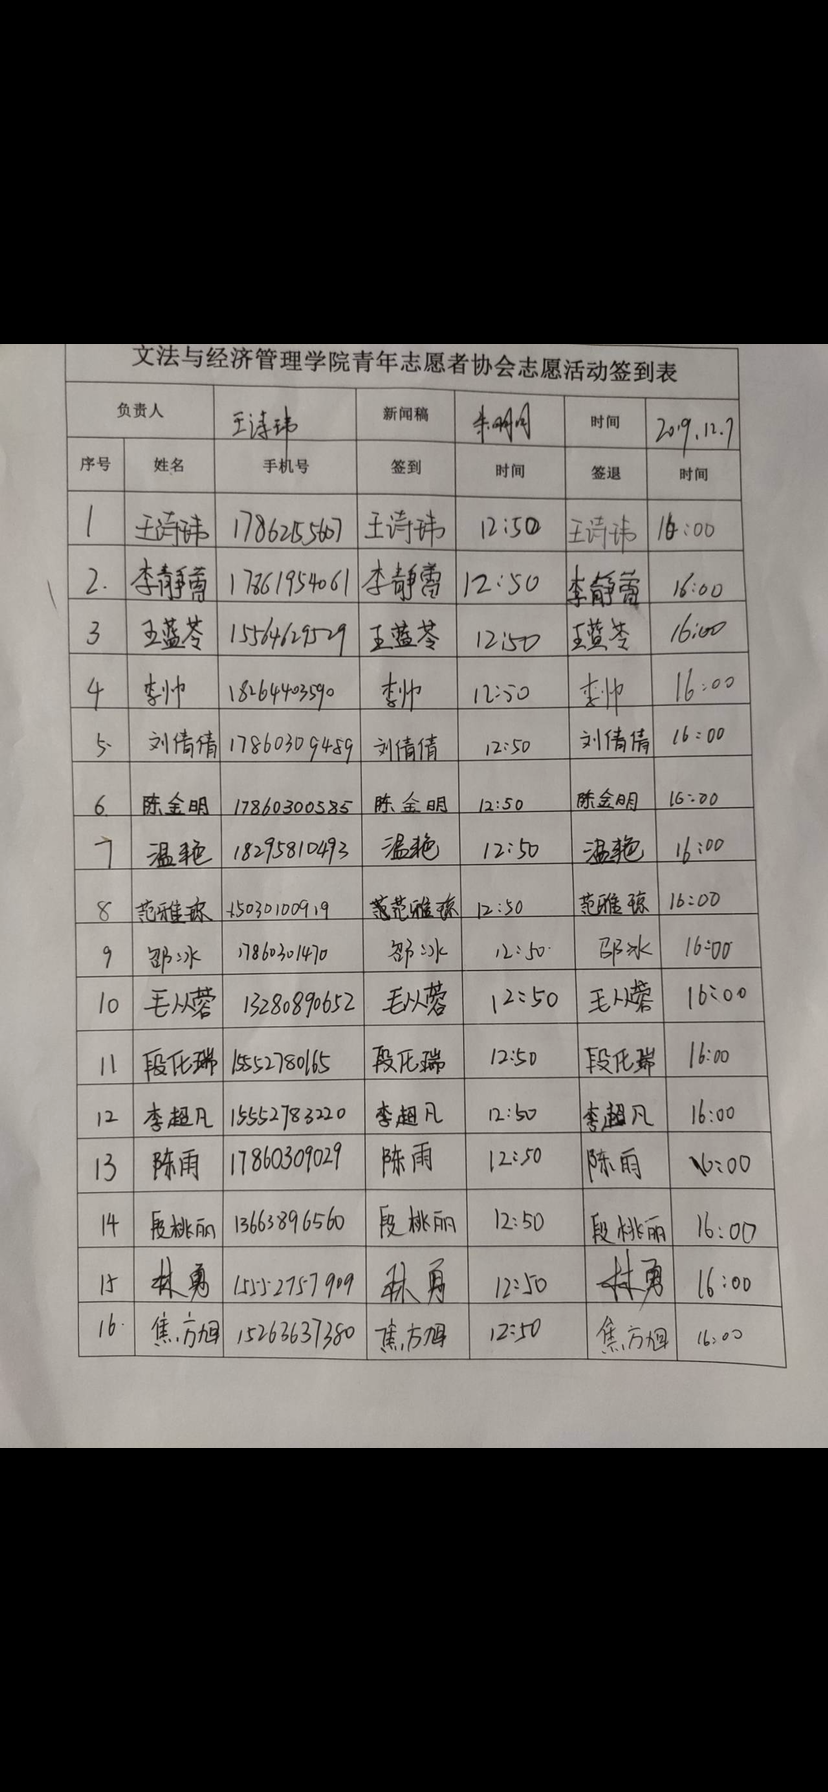 文法与经济管理学院青年志愿者协会志愿活动签到表
负责人 王诗玮 新闻稿 朱明月 时间 2019.12.7
序号 姓名 手机号 签到 时间 签退 时间
1 王诗玮 王诗玮 12:50 王诗玮 16:00
2. 李静蕾 17861954061 李静蕾 12:50 李静蕾 16:00
3 王蓝苓 15564629529 王蓝苓 12:50 王蓝苓 16:00
4 李帅 18264403590 李帅 12:50 李帅 16:00
5. 刘倩倩 17860309489 刘倩倩 12:50 刘倩倩 16:00
6. 陈金明 17860300585 陈金明 12:50 陈金明 16:00
7 温艳 18295810493 温艳 12:50 温艳 16:00
8 范雅琼 15030100919 范范雅琼 12:50 范雅琼 16:00
9 邵冰 17860301470 邵冰 12:50 邵冰 16:00
10 毛从蓉 13280890652 毛从蓉 12:50 毛从蓉 16:00
11 段化瑞 15552780165 段化瑞 12:50 段化瑞 16:00
12 李超凡 15552783220 李超凡 12:50 李超凡 16:00
13 陈雨 17860309029 陈雨 12:50 陈雨 16:00
14 段桃丽 13663896560 段桃丽 12:50 段桃丽 16:00
15 林勇 15552757909 林勇 12:50 林勇 16:00
16. 焦方旭 15263637380 焦方旭 12:50 焦方旭 16:00